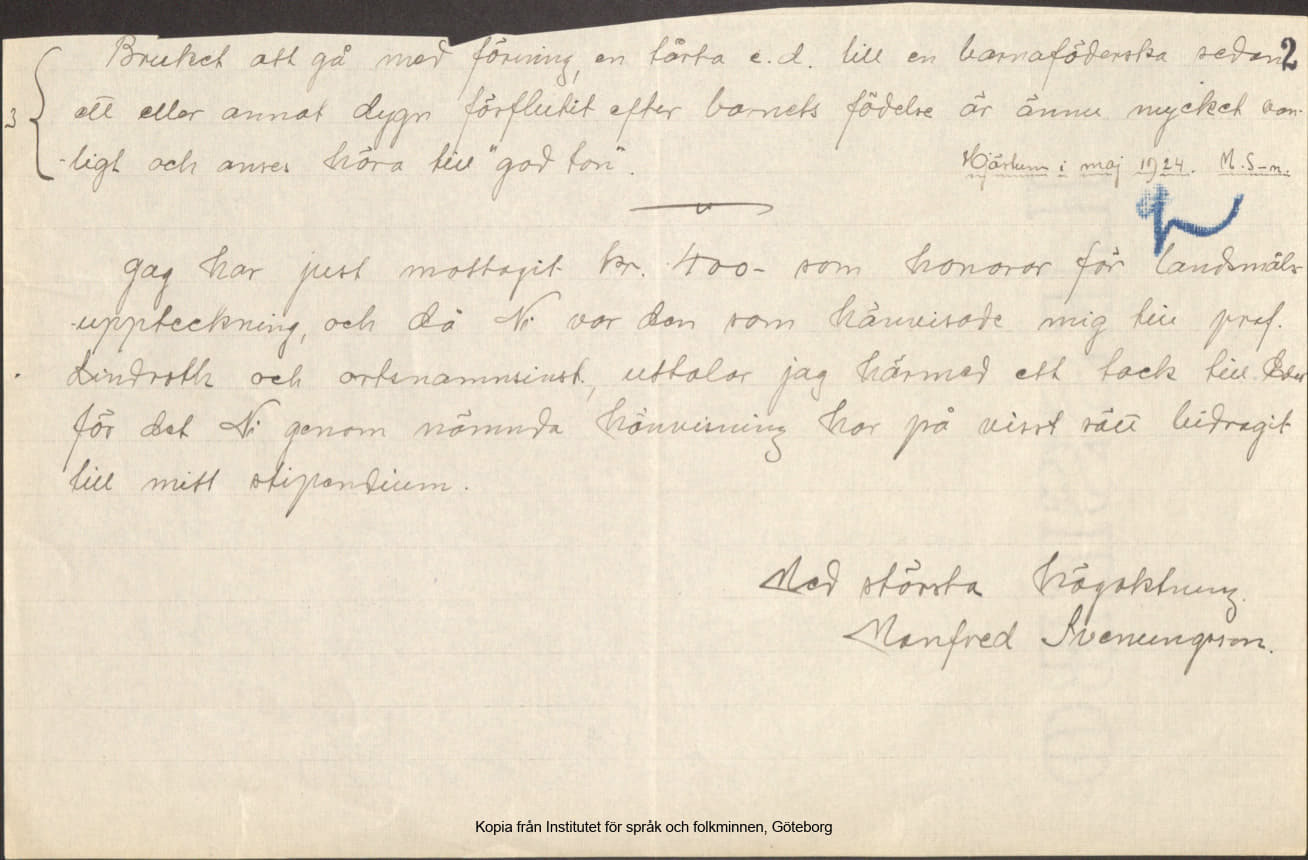 Bruket att gå med förning, en tårta e.d. till en barnaföderska sedan 2
3 ett eller annat dygn förflutit efter barnets födelse är ännu mycket van-
-ligt och anses höra till "god ton".
Hjärtum i maj 1924. M.S-n.
Jag har just mottagit kr. 400- som honorar för landsmåls-
-uppteckning, och då Ni var den som hänvisade mig till prof.
Lindroth och ortsnamnsinst., uttalar jag härmed ett tack till Eder
för det Ni genom nämnda hänvisning har på visst sätt bidragit
till mitt stipendium.
Med största högaktning.
Manfred Svenungsson.
Kopia från Institutet för språk och folkminnen, Göteborg